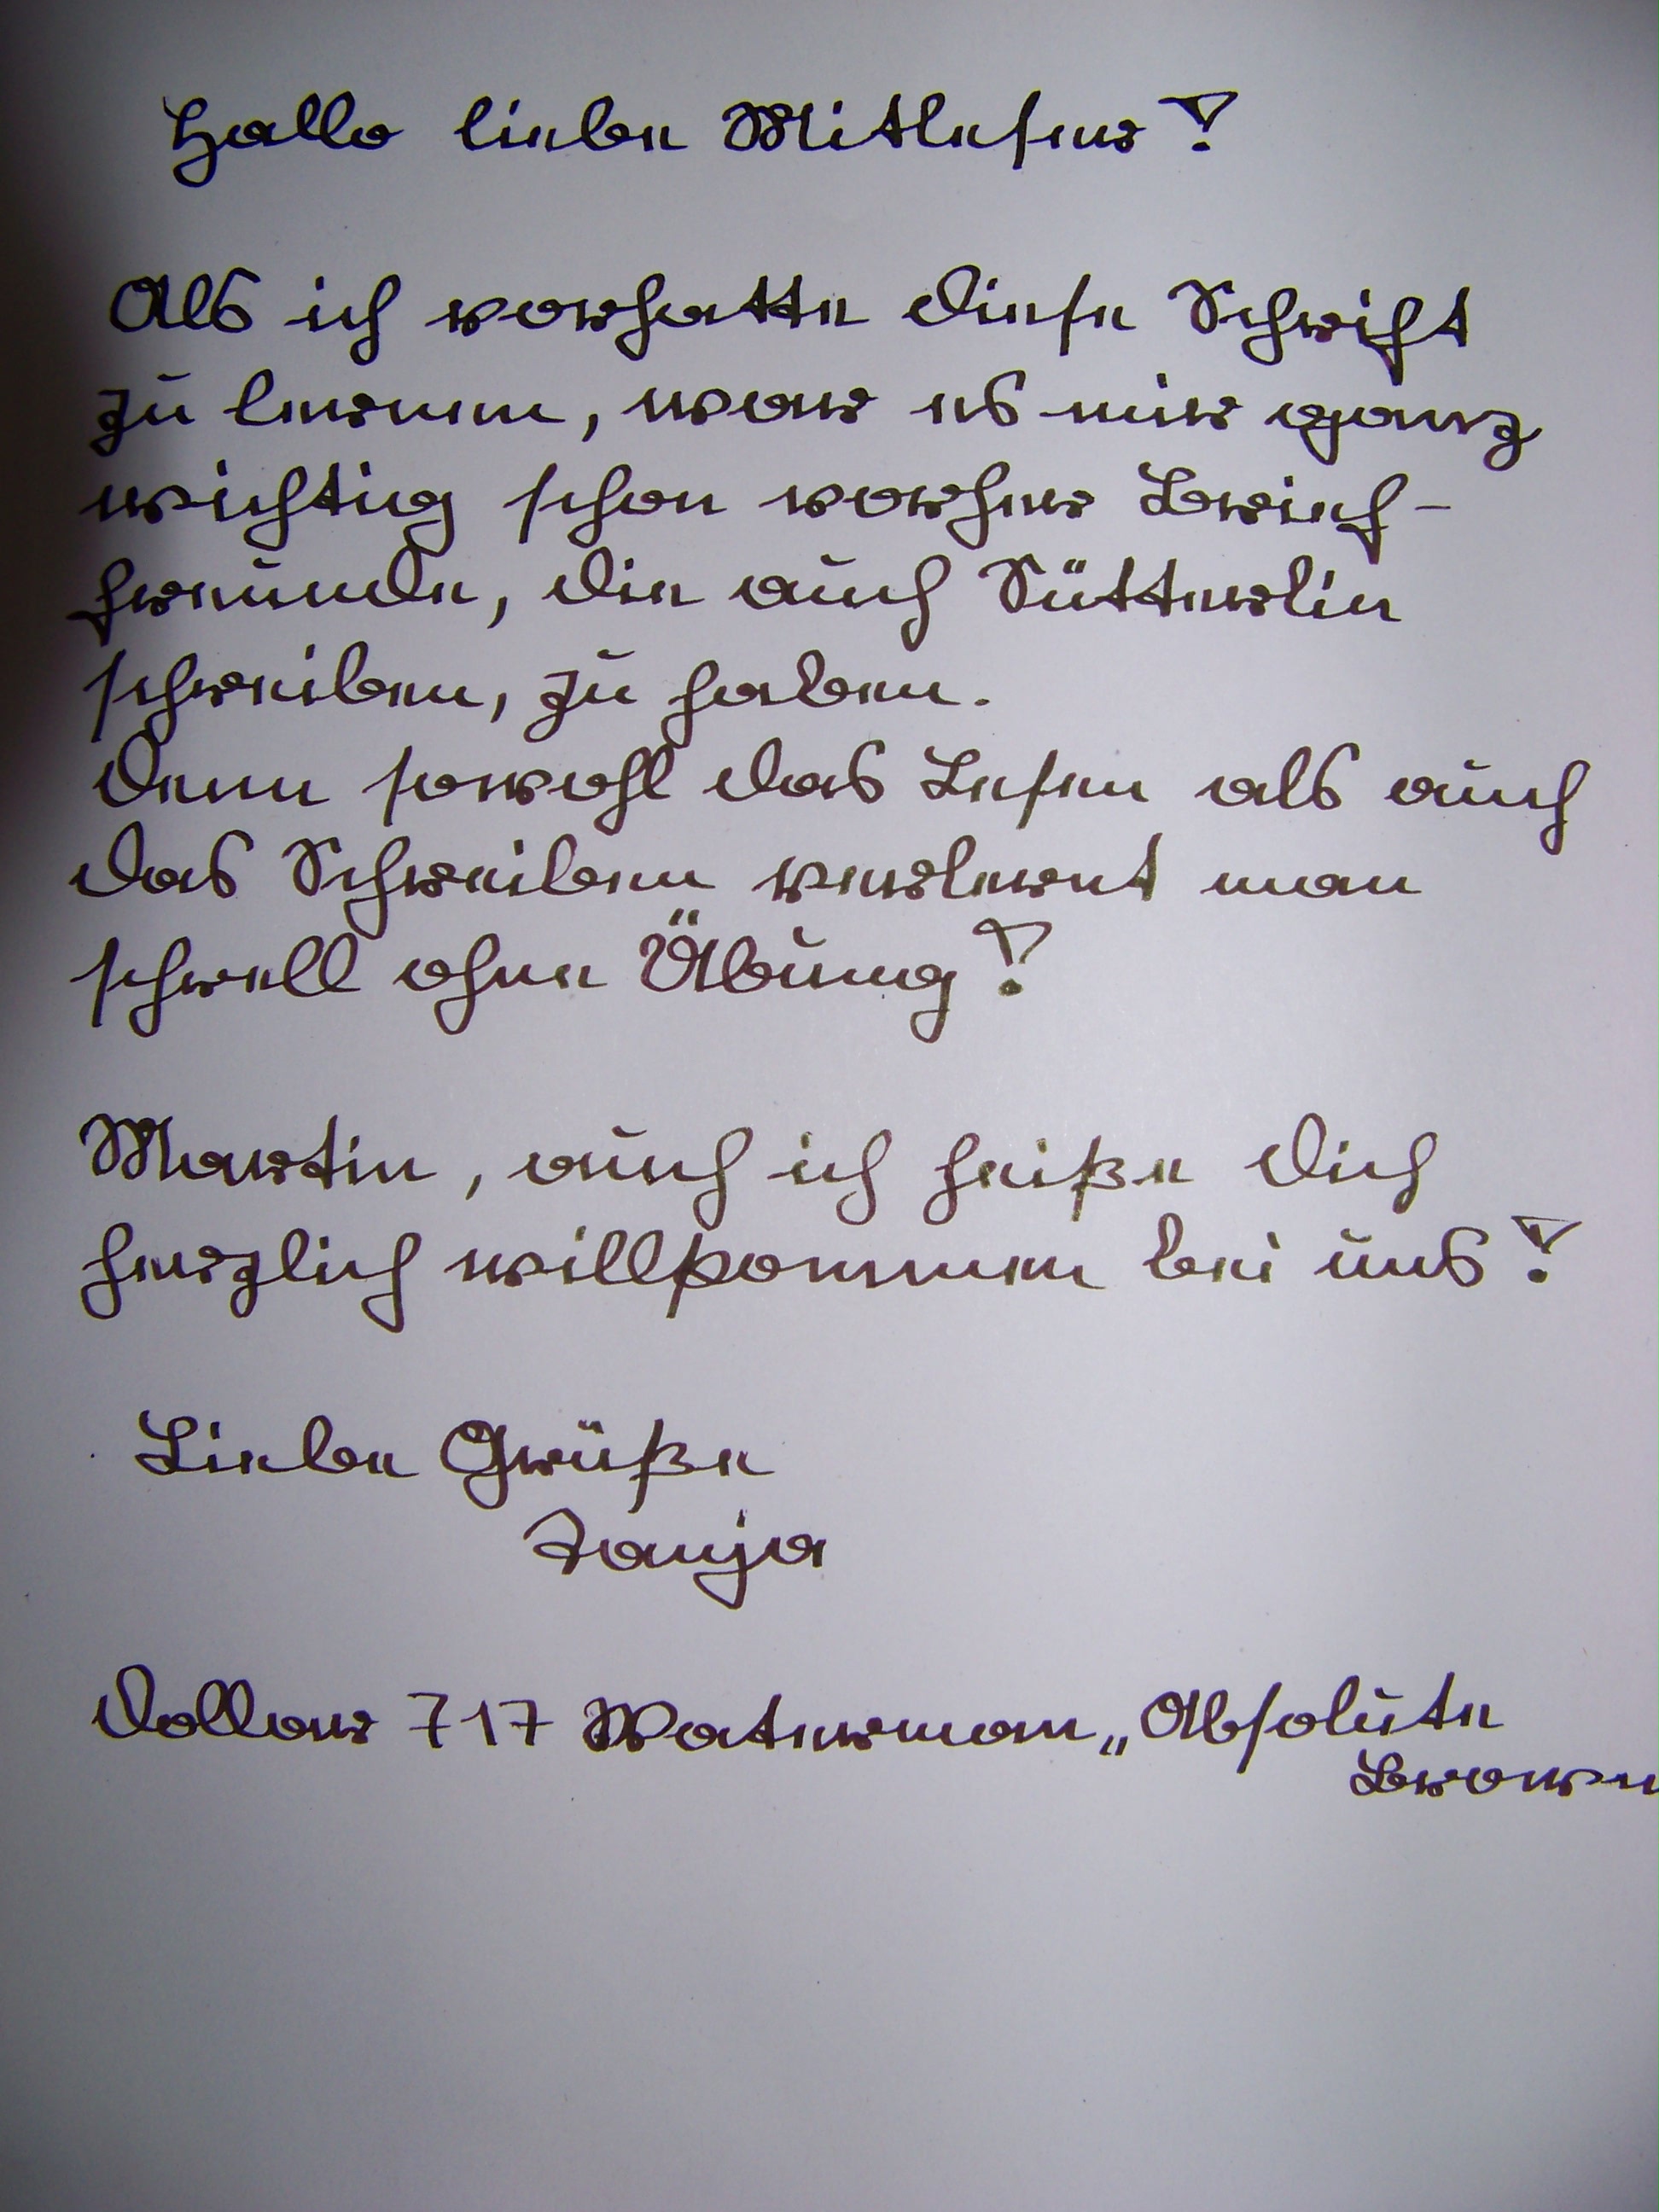 Hallo liebe Mitleser!
Als ich vorhatte diese Schrift
zu lernen, war es mir ganz
wichtig schon vorher Brief-
freunde, die auch Sütterlin
schreiben, zu haben.
Denn sowohl das Lesen als auch
das Schreiben verlernt man
schnell ohne Übung!
Martin, auch ich heiße Dich
herzlich willkommen bei uns!
Liebe Grüße
Tanja
Dollar 717 Waterman „Absolute
Brown